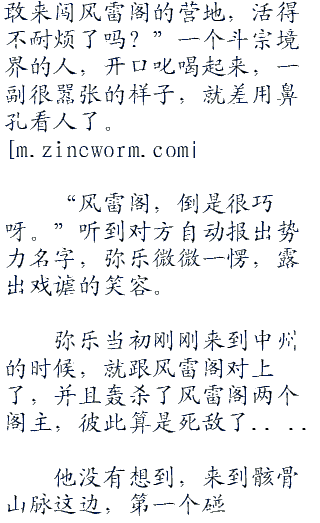 敢来闯风雷阁的营地，活得
不耐烦了吗？”一个斗宗境
界的人，开口叱喝起来，一
副很嚣张的样子，就差用鼻
孔看人了。
[m.zincworm.com]
“风雷阁，倒是很巧
呀。”听到对方自动报出势
力名字，弥乐微微一愣，露
出戏谑的笑容。
弥乐当初刚刚来到中州
的时候，就跟风雷阁对上
了，并且轰杀了风雷阁两个
阁主，彼此算是死敌了....
他没有想到，来到骸骨
山脉这边，第一个碰